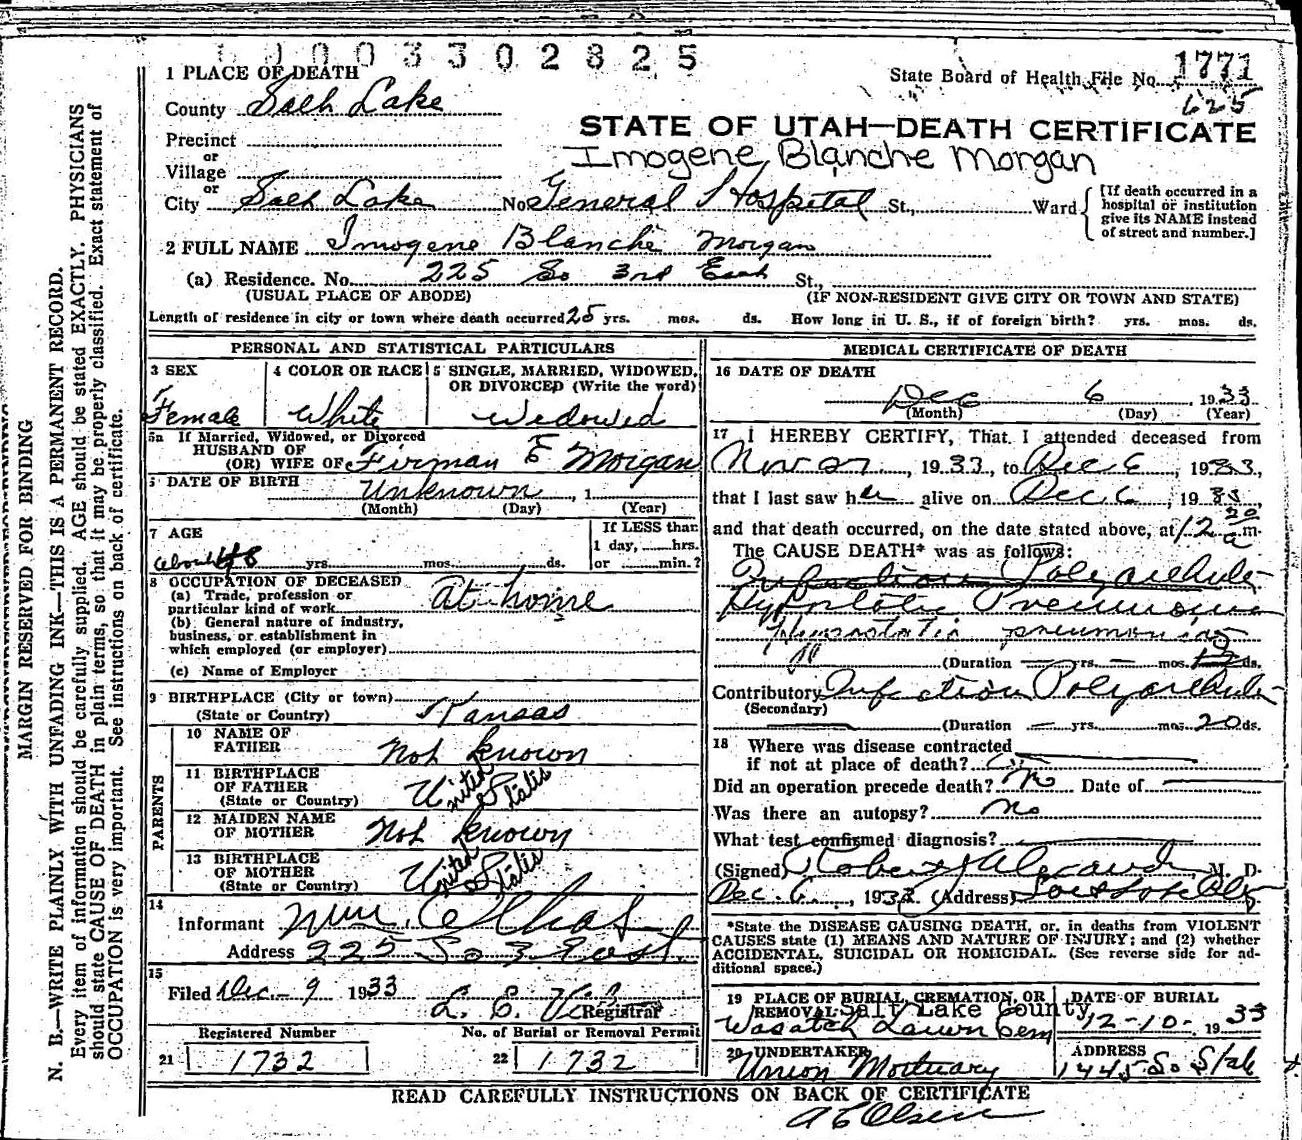 0003302825
State Board of Health File No. 1771
625
1 PLACE OF DEATH
County Salt Lake
STATE OF UTAH—DEATH CERTIFICATE
Imogene Blanche Morgan
Precinct
or
Village
or
City Salt Lake No. General Hospital St., Ward
[If death occurred in a
hospital or institution
give its NAME instead
of street and number.]
2 FULL NAME Imogene Blanche Morgan
(a) Residence. No. 225 So 3rd East St.,
(USUAL PLACE OF ABODE) (IF NON-RESIDENT GIVE CITY OR TOWN AND STATE)
Length of residence in city or town where death occurred 25 yrs. mos. ds. How long in U. S., if of foreign birth? yrs. mos. ds.
PERSONAL AND STATISTICAL PARTICULARS
3 SEX
Female
4 COLOR OR RACE
White
5 SINGLE, MARRIED, WIDOWED,
OR DIVORCED (Write the word)
Widowed
5a If Married, Widowed, or Divorced
HUSBAND OF
(OR) WIFE OF Firman E Morgan
DATE OF BIRTH Unknown, 1
(Month) (Day) (Year)
7 AGE
about 48 yrs. mos. ds.
If LESS than
1 day, hrs.
or min.?
8 OCCUPATION OF DECEASED
(a) Trade, profession or
particular kind of work At home
(b) General nature of industry,
business, or establishment in
which employed (or employer)
(c) Name of Employer
9 BIRTHPLACE (City or town)
(State or Country) Kansas
PARENTS
10 NAME OF
FATHER Not known
11 BIRTHPLACE
OF FATHER
(State or Country) United States
12 MAIDEN NAME
OF MOTHER Not known
13 BIRTHPLACE
OF MOTHER
(State or Country) United States
14
Informant Wm.
Address 225 So 3 East
15
Filed Dec - 9 1933 L. E.
Registrar
Registered Number No. of Burial or Removal Permit
21 1732 22 1732
MEDICAL CERTIFICATE OF DEATH
16 DATE OF DEATH
Dec 6, 1933
(Month) (Day) (Year)
17 I HEREBY CERTIFY, That I attended deceased from
Nov 27, 1933, to Dec 6, 1933,
that I last saw her alive on Dec. 6, 1933
and that death occurred, on the date stated above, at 12 20 a m.
The CAUSE DEATH* was as follows:
Infection Polyarthritis
Hypostatic Pneumonia
Hypostatic pneumonia
(Duration — yrs. — mos. ds.
Contributory Infection Polyarthritis
(Secondary)
(Duration — yrs. mos. 20 ds.
18 Where was disease contracted
if not at place of death?
Did an operation precede death? No Date of
Was there an autopsy? No
What test confirmed diagnosis?
(Signed) Robert Alexander M. D.
Dec. 6, 1933 (Address)
*State the DISEASE CAUSING DEATH, or, in deaths from VIOLENT
CAUSES state (1) MEANS AND NATURE OF INJURY; and (2) whether
ACCIDENTAL, SUICIDAL OR HOMICIDAL. (See reverse side for ad-
ditional space.)
19 PLACE OF BURIAL, CREMATION, OR
REMOVAL Salt Lake County
Wasatch Lawn Cem
DATE OF BURIAL
12-10- 1933
20 UNDERTAKER
Union Mortuary
ADDRESS
1445 So State
READ CAREFULLY INSTRUCTIONS ON BACK OF CERTIFICATE
A E Olsen
MARGIN RESERVED FOR BINDING
N. B.—WRITE PLAINLY WITH UNFADING INK—THIS IS A PERMANENT RECORD.
Every item of information should be carefully supplied. AGE should be stated EXACTLY. PHYSICIANS
should state CAUSE OF DEATH in plain terms, so that it may be properly classified. Exact statement of
OCCUPATION is very important. See instructions on back of certificate.